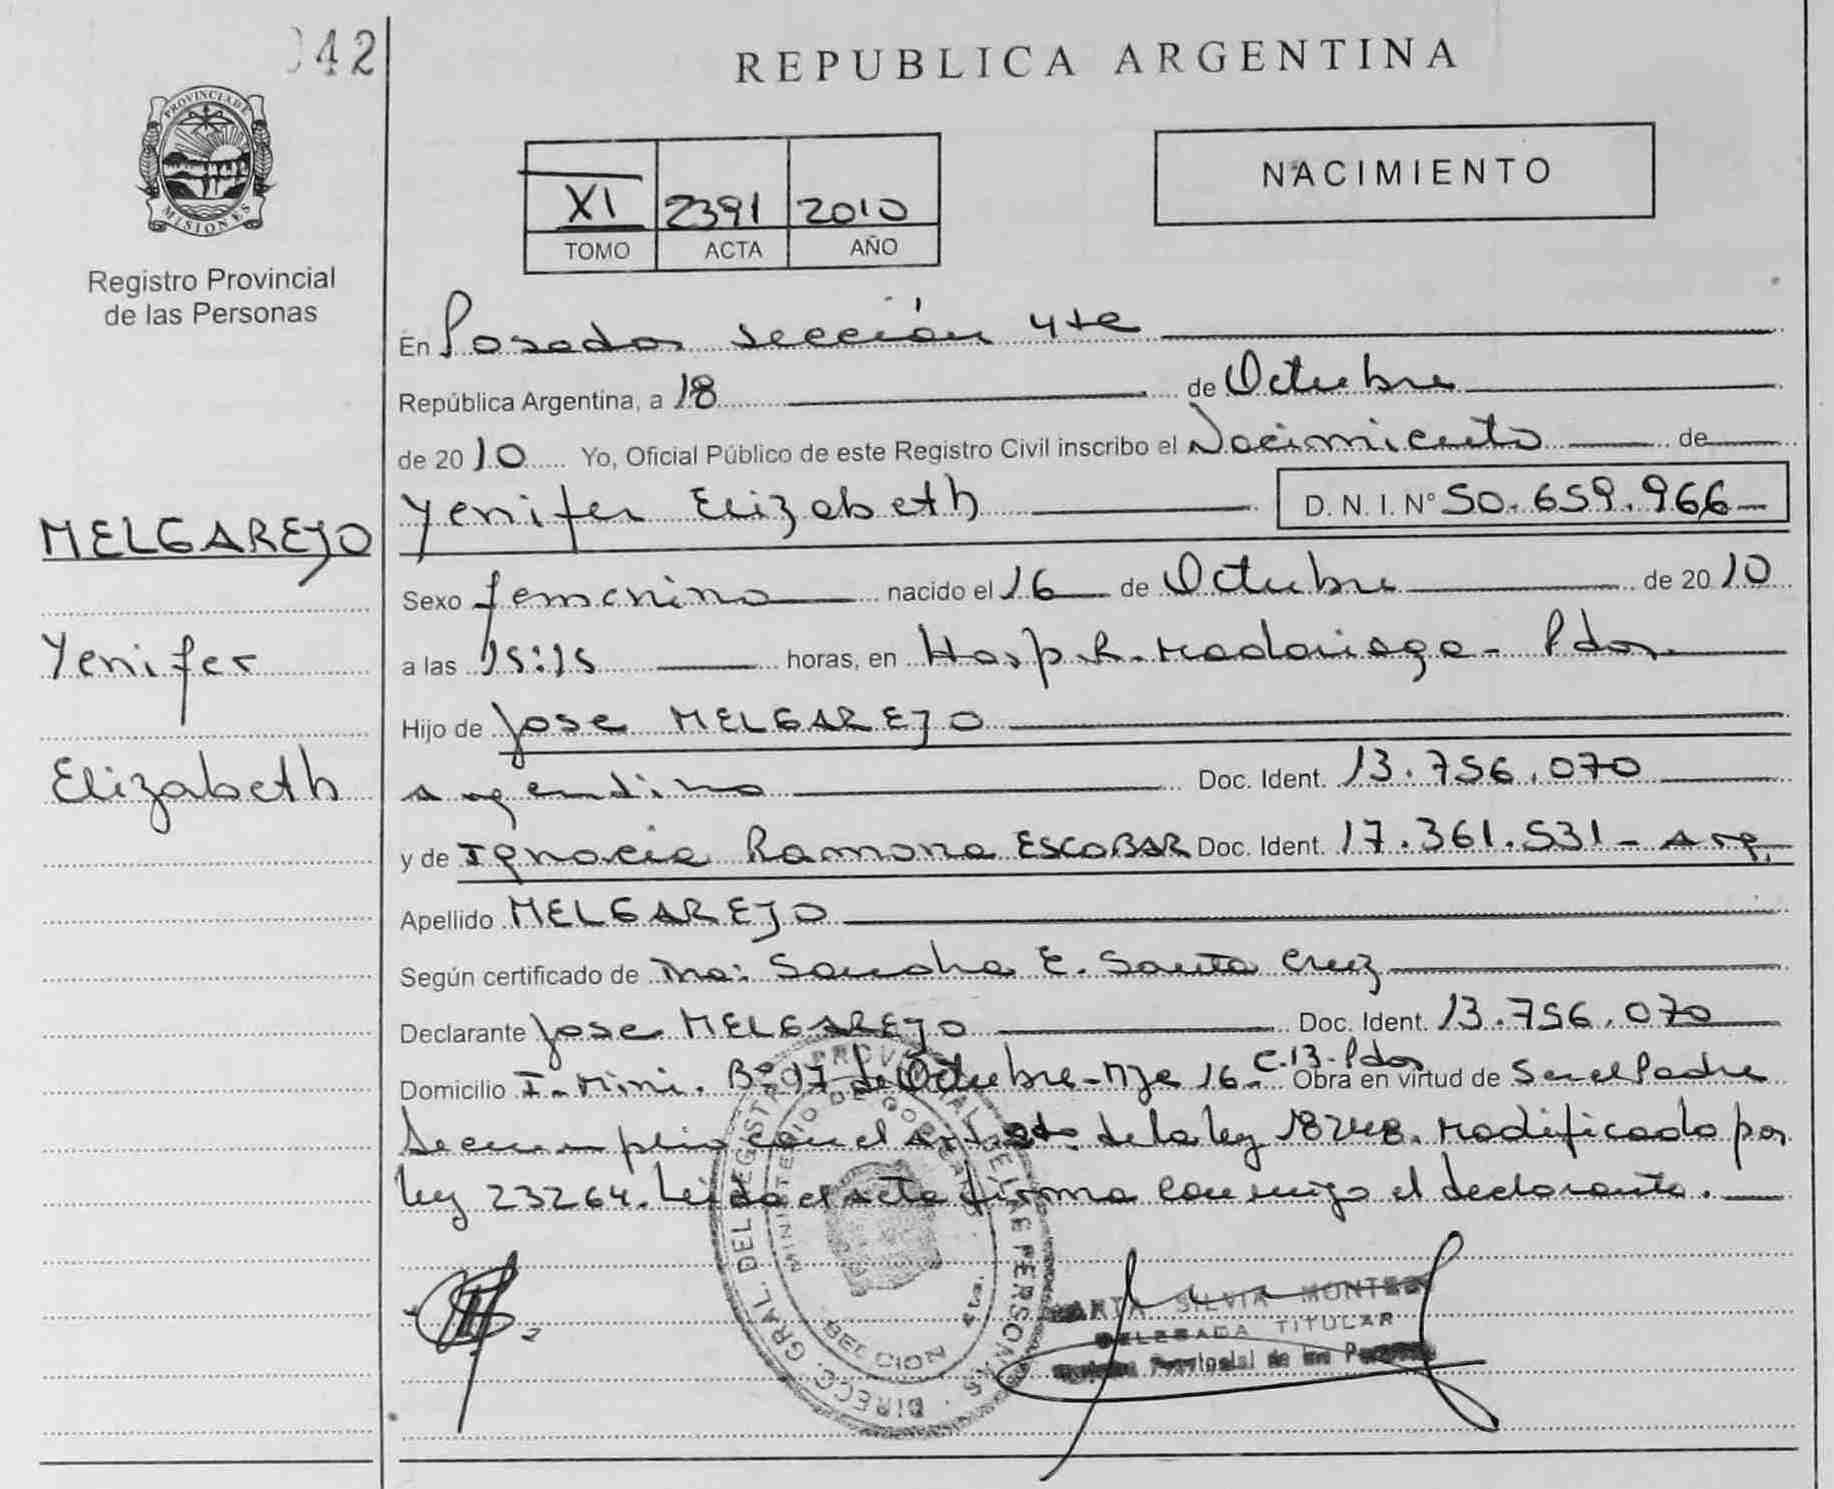 042
REPUBLICA ARGENTINA
PROVINCIA DE MISIONES
Registro Provincial
de las Personas
XI 2391 2010
TOMO ACTA AÑO
NACIMIENTO
En Posadas sección 4ta
República Argentina, a 18 de Octubre
de 2010 Yo, Oficial Público de este Registro Civil inscribo el Nacimiento de
Yenifer Elizabeth D.N.I. Nº 50.659.966
MELGAREJO
Yenifer
Elizabeth
Sexo femenino nacido el 16 de Octubre de 2010
a las 15:15 horas, en Hosp. R. Madariaga - Pdas.
Hijo de Jose MELGAREJO
argentino Doc. Ident. 13.756.070
y de Ignacia Ramona ESCOBAR Doc. Ident. 17.361.531 - Arg.
Apellido MELGAREJO
Según certificado de Sandra E. Santa Cruz
Declarante Jose MELGAREJO Doc. Ident. 13.756.070
Domicilio I-Mini. Bº 17 de Octubre - Mje 16 - C.13 - Pdas Obra en virtud de Ser el Padre
Se cumplio con el art. de la ley 18248. Modificado por
ley 23264. Leida el acta firma conmigo el declarante.
DIRECC. GRAL. DEL REGISTRO PROVINCIAL DE LAS PERSONAS
MINISTERIO DE GOBIERNO
SECCION 4ta.
MARTA SILVIA MONTES
DELEGADA TITULAR
Provincial de las Personas